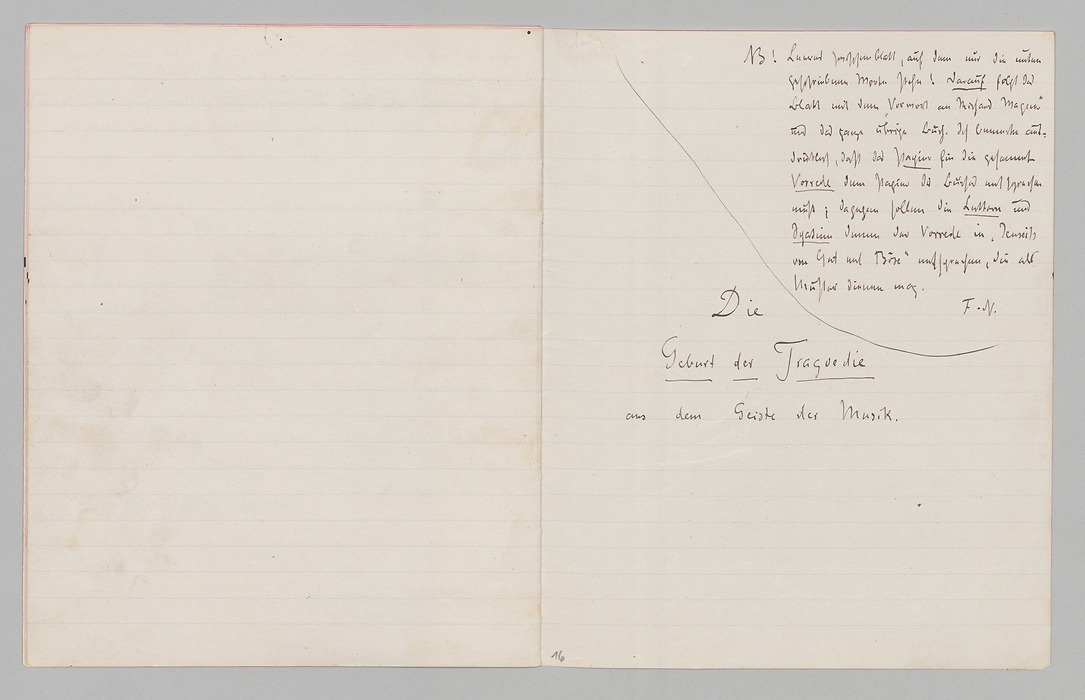 NB! Leeres Zwischenblatt, auf dem nur die unten
geschriebenen Worte stehn! Darauf folgt das
Blatt mit dem „Vorwort an Richard Wagner“
und das ganze übrige Buch. Ich bemerke aus-
drücklich, daß das Papier für die gesammte
Vorrede dem Papier des Buches entsprechen
muß; dagegen sollen die Lettern und
Distanzen denen der Vorrede in „Jenseits
von Gut und Böse“ entsprechen, die als
Muster dienen mag.
F. N.
Die
Geburt der Tragoedie
aus dem Geiste der Musik.
16